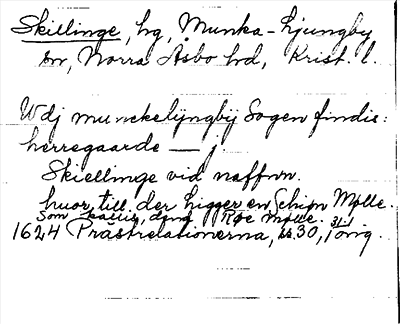 Skillinge, hg, Munka-Ljungby
sn, Norra Åsbo hd, Krist. l.
Wdj munckelÿngbÿ Sogen findis:
herregaarde — j
Skiellinge vid naffnn.
huor till der ligger en Schipn Mølle.
Som kallis, dend Røe Mølle.
1624 Prästrelationerna, 30, 1 orig.